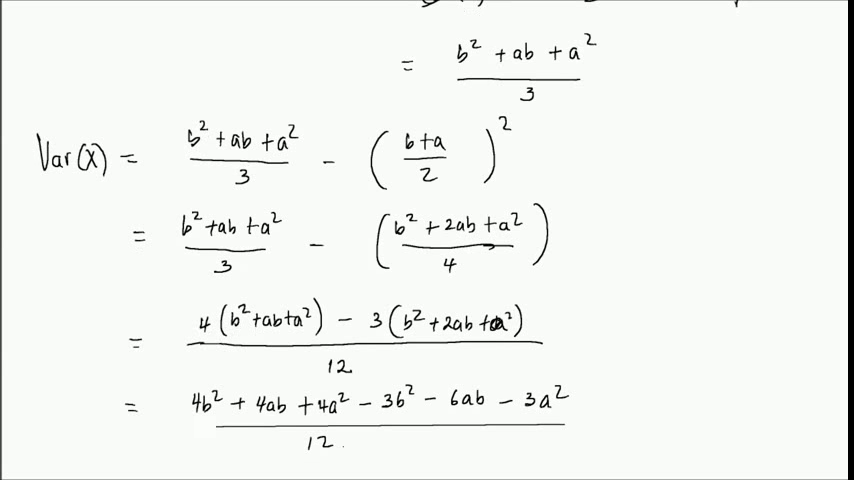 = (b² + ab + a²)/3
Var(X) = (b² + ab + a²)/3 − ((b+a)/2)²
= (b² + ab + a²)/3 − ((b² + 2ab + a²)/4)
= (4(b² + ab + a²) − 3(b² + 2ab + a²))/12
= (4b² + 4ab + 4a² − 3b² − 6ab − 3a²)/12